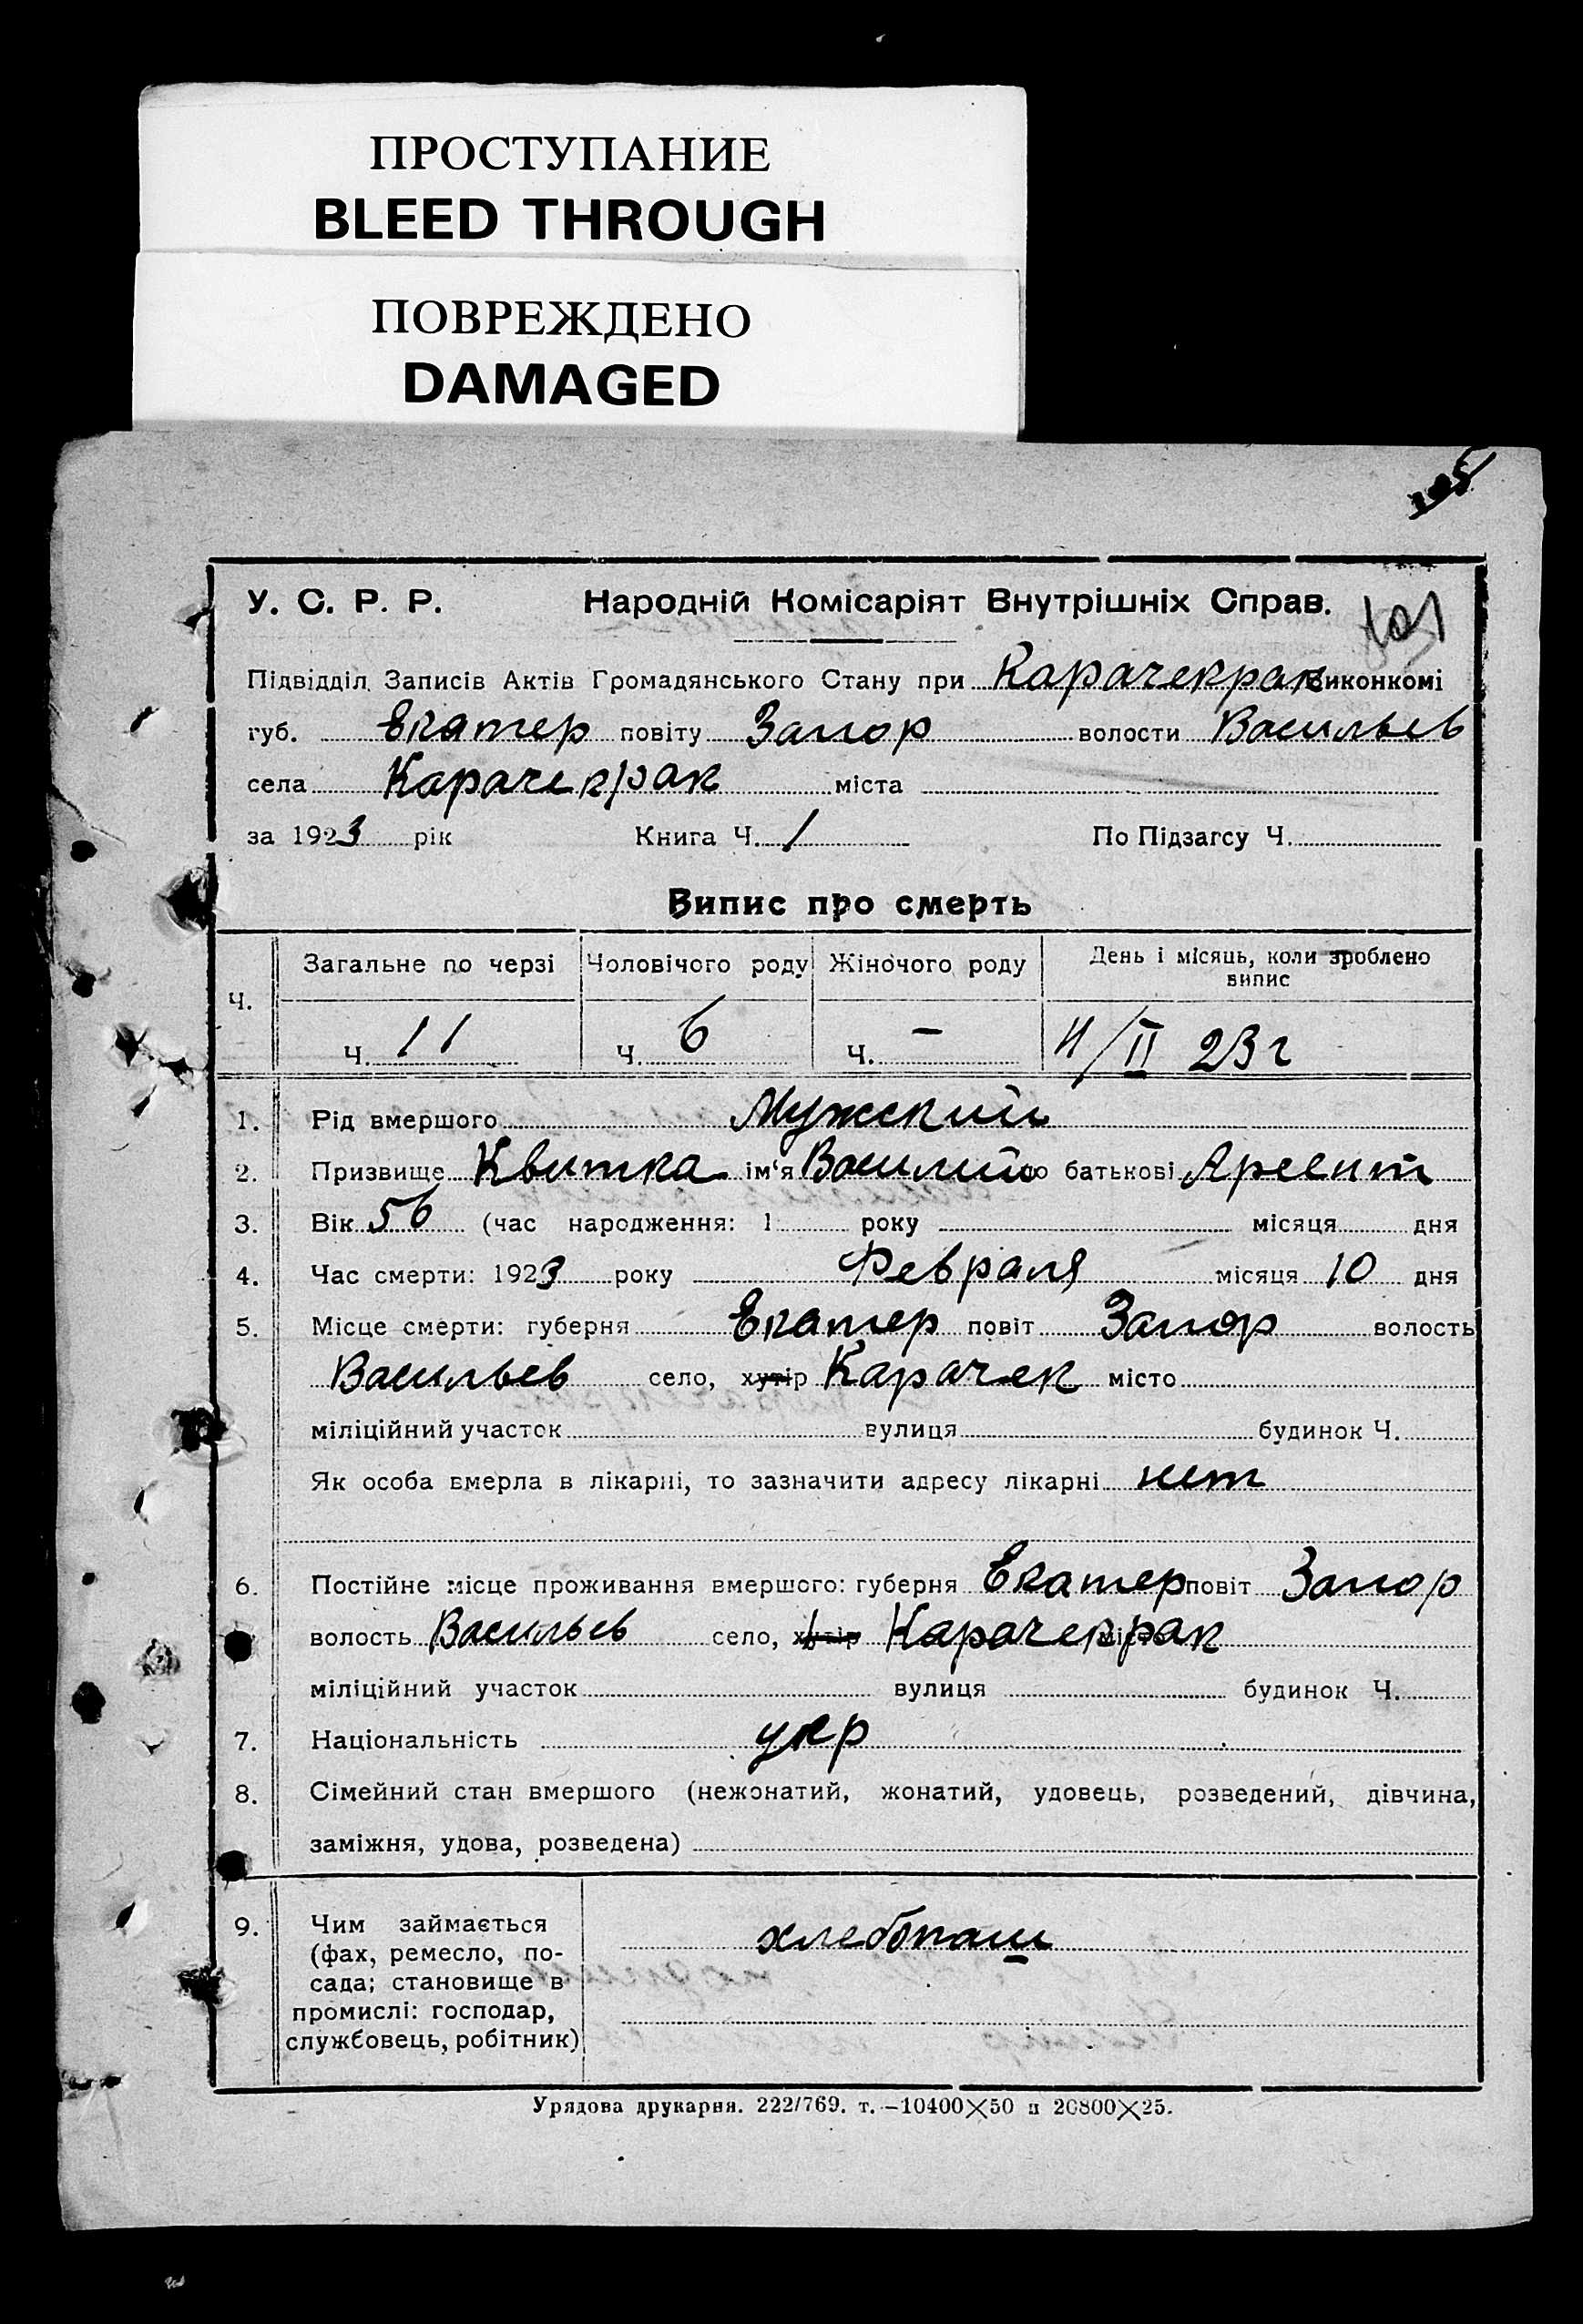 ПРОСТУПАНИЕ
BLEED THROUGH
ПОВРЕЖДЕНО
DAMAGED
У. С. Р. Р. Народній Комісаріят Внутрішніх Справ.
Підвідділ Записів Актів Громадянського Стану при Карачекрак виконкомі
губ. Екатер повіту Запор волости Васильев
села Карачекрак міста
за 1923 рік Книга Ч. 1 По Підзагсу Ч.
Випис про смерть
Ч. Загальне по черзі Чоловічого роду Жіночого роду День і місяць, коли зроблено випис
Ч. 11 Ч. 6 Ч. — 11/II 23 г
1. Рід вмершого Мужский
2. Призвище Квитка ім'я Василий по батькові Арсент
3. Вік 56 (час народження: 1 року місяця дня
4. Час смерти: 1923 року Февраля місяця 10 дня
5. Місце смерти: губерня Екатер повіт Запор волость
Васильев село, хутір Карачек місто
міліційний участок вулиця будинок Ч.
Як особа вмерла в лікарні, то зазначити адресу лікарні нет
6. Постійне місце проживання вмершого: губерня Екатер повіт Запор
волость Васильев село, хутір Карачекрак місто
міліційний участок вулиця будинок Ч.
7. Національність укр
8. Сімейний стан вмершого (нежонатий, жонатий, удовець, розведений, дівчина,
заміжня, удова, розведена)
9. Чим займається хлебопаш
(фах, ремесло, по-
сада; становище в
промислі: господар,
службовець, робітник)
Урядова друкарня. 222/769. т.—10400×50 п 20800×25.